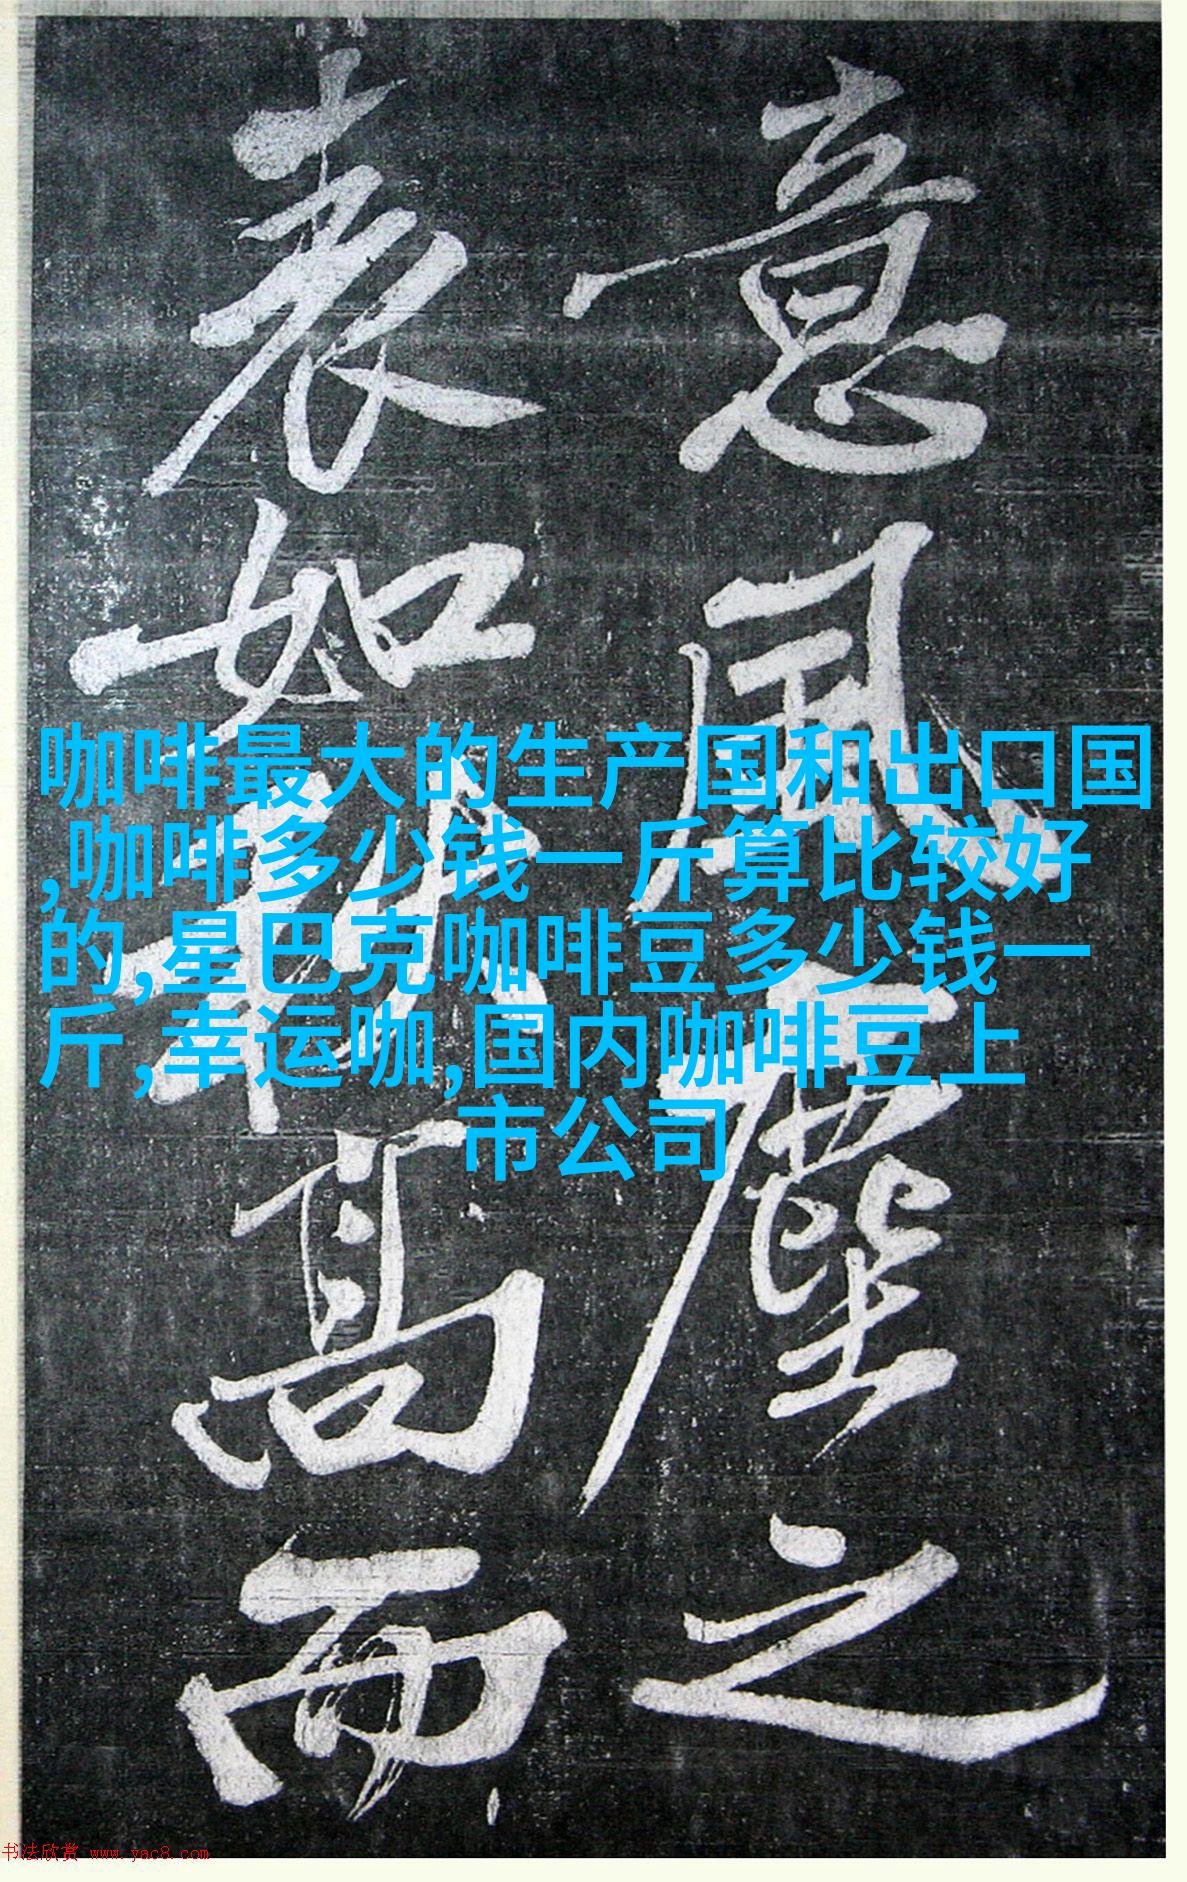 意風塵之
表如秋高而
咖啡最大的生产国和出口国
,咖啡多少钱一斤算比较好
的,星巴克咖啡豆多少钱一
斤,幸运咖,国内咖啡豆上
市公司
书法欣赏 www.yac8.com